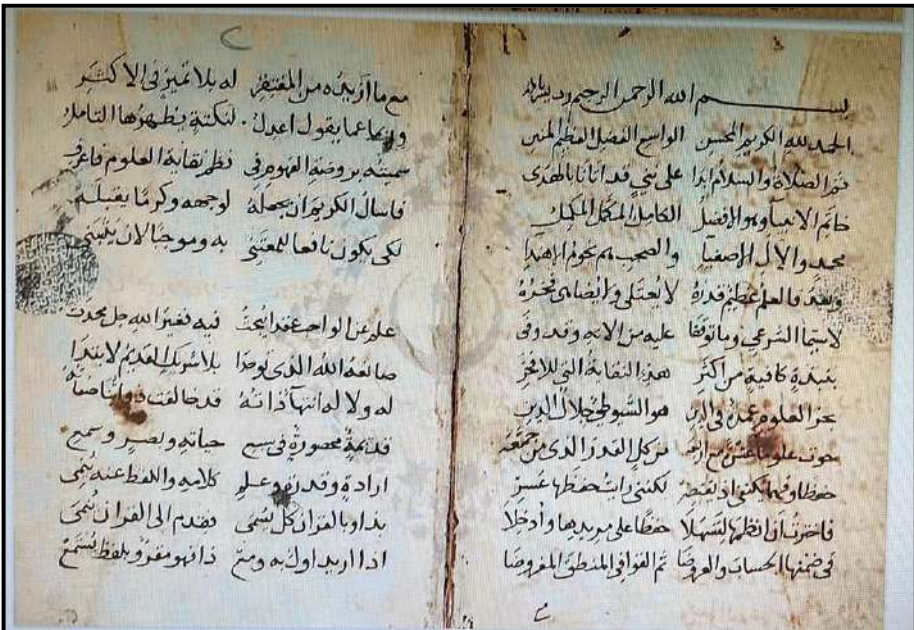 بسم الله الرحمن الرحيم
الحمد لله الكريم المحسن الواسع الفضل العظيم المنن
ثم الصلاة والسلام ابدا على نبي قد اتانا بالهدى
خاتم الانبيا وهو الافضل الكامل المكمل المكمل
محمد والآل الاصفيا والصحب هم نجوم الاهتدا
وبعد فالعلم عظيم قدره لا يعتلى ولا يضاهى فخره
لا سيما الشرعي وما توقفا عليه من الاته وقد وفى
بنبذة كافية من اكثر هذي النقاية التي للافخر
بحر العلوم عمدتي في الدين هو السيوطي جلال الدين
حوت علوما عشرة مع اربعة من كل القدر الذى من جمعه
حفظا وفهما يكتفي اذ يقتصر لكنني رايت حفظها عسر
فاخترت ان انظمها لتسهلا حفظا على مريدها وأدخلا
في ضمنها الحساب والعروضا ثم القوافي المنطق المفروضا
مع ما ازيده من المفتقر له بلا تميز فى الاكثر
وربما عما يقول اعدل لنكتة يظهرها التامل
سميته بروضة الفهوم فى نظم نقاية العلوم فاعرف
فاسأل الكريم ان يجعله لوجهه وكرما يقبله
لكى يكون نافعا للمعتنى به وموجبا لان
علم عن الواجب عقدا يبحث فيه فغير الله جل محدث
صانعه الله الذى توحدا بلا شريك القديم لا ابتدا
له ولا له انتها ذاته قد خالفت ذواتنا صفاته
قديمة محصورة فى سبع حياته وبصر وسمع
ارادة وقدرة وعلم كلامه واللفظ عنه
بذا وبالقران كل يسمى فقدم الى القران
اذا اريد اول به ومع ذا فهو مقرو بلفظ يستمع